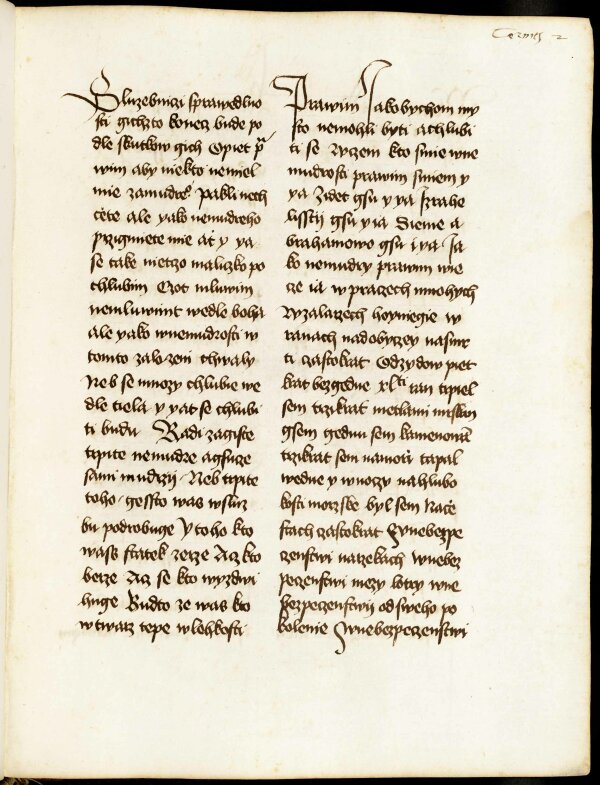 Sluzebniczi sprawedlno
sti gichzto konecz bude po
dle skutkow gich Opiet p̄
wim aby niekto nemiel
mie zamudreo Pakli nech
cete ale yako nemudreho
przigmiete mie at y ya
se take nieczo maliczko po
chlubim Czoz mluwim
nemluwimt wedle boha
ale yako wnemudrosti w
tomto zalozeni chwaly
Neb se mnozy chlubie we
dle tiela y yat se chlubi
ti budu Radi zagiste
trpite nemudre agsuze
sami mudrzij Neb trpite
toho gessto was wsluz
bu podrobuge Y toho kto
wass statek zerze Acz kto
berze Acz se kto wyzdwi
huge Budto ze was kto
w twarz tepe wlehkosti
Prawim Jakobychom my
sto nemohli byti achlubi
ti se Ryczem kto smie wne
mudrosti prawim smiem y
ya Zidet gsu y ya Izrahe
lisstij gsu y ia Siemie a
brahamowo gsu i ya Ja
ko nemudry prawim wie
cze ia w praczech mnohych
Ryzalarzech hoyniegie w
ranach nad obyczey nasmr
ti czastokrat Odzydow piet
krat bezgedne xlti ran trpiel
sem trzikrat metlami mrskan
gsem gednu sem kamenowan
trzikrat sem namorzi tapal
wedne y wnoczy nahlubo
kosti morzske byl sem Nacze
stach czastokrat Swnebezpe
czenstwi narzekach Wnebez
peczenstwi mezy lotry wne
bezpeczenstwij od sweho po
kolenie Swnebezpeczenstwi